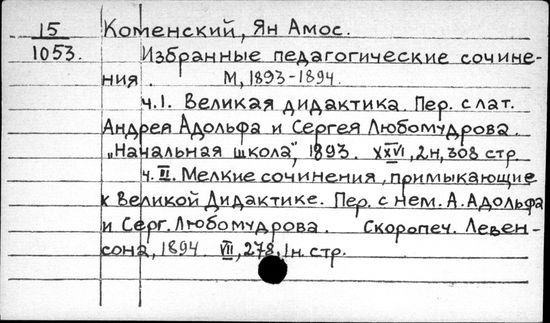 15 Коменский, Ян Амос.
1053. Избранные педагогические сочине-
ния. М, 1893-1894.
ч.I. Великая дидактика. Пер. с лат.
Андрея Адольфа и Сергея Любомудрова.
„Начальная школа", 1893. XXVI, 2н, 308 стр
ч. II. Мелкие сочинения, примыкающие
к Великой Дидактике. Пер. с нем. А. Адольфа
и Серг. Любомудрова. Скоропеч. Левен-
сона, 1894. VII, 278, 1н. стр.